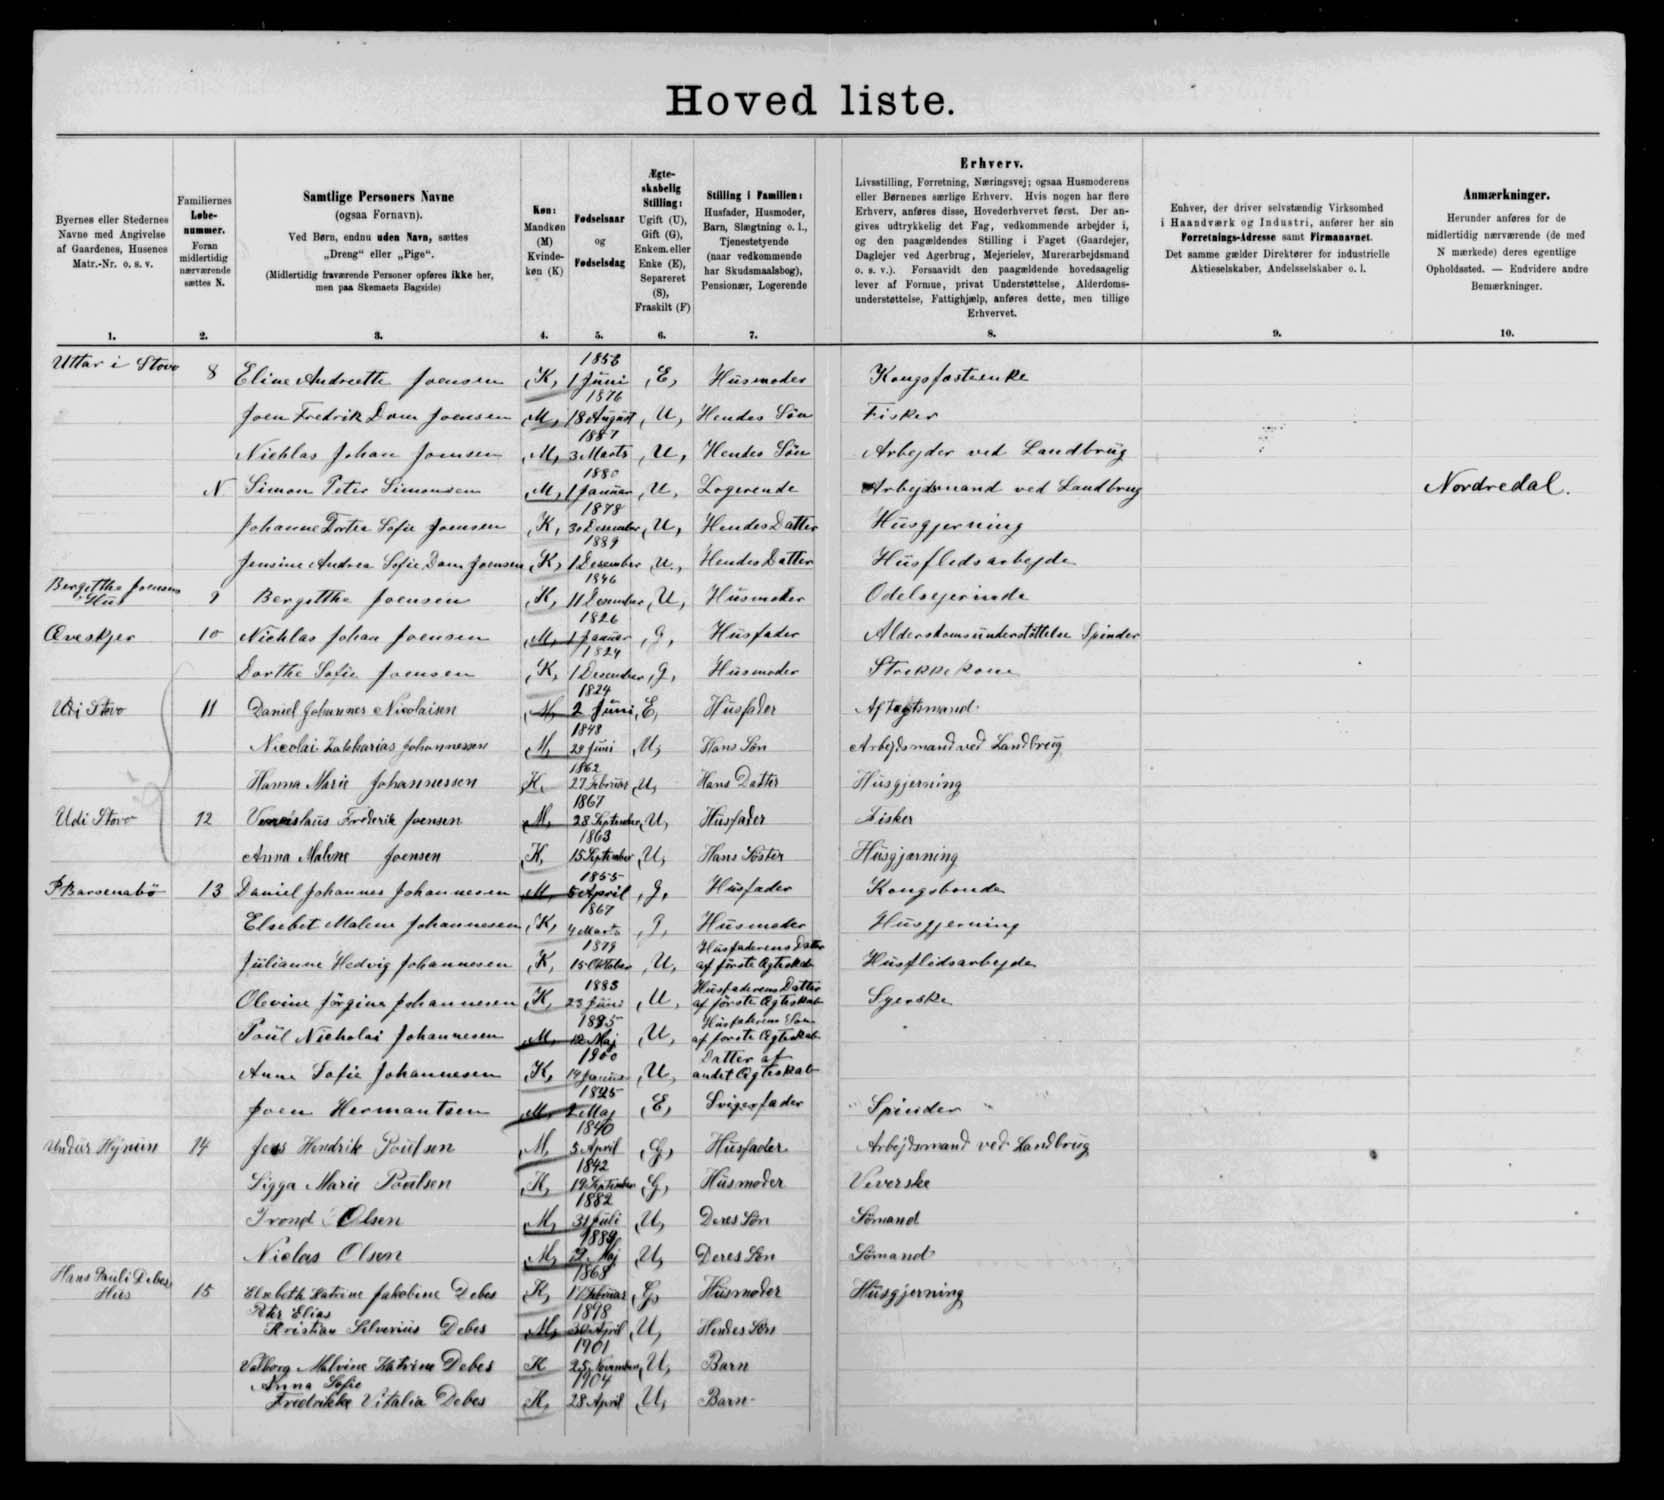 Hoved liste.
Byernes eller Stedernes
Navne med Angivelse
af Gaardenes, Husenes
Matr.-Nr. o. s. v.
1.
Familiernes
Løbe-
nummer.
Foran
midlertidig
nærværende
sættes N.
2.
Samtlige Personers Navne
(ogsaa Fornavn).
Ved Børn, endnu uden Navn, sættes
„Dreng“ eller „Pige“.
(Midlertidig fraværende Personer opføres ikke her,
men paa Skemaets Bagside)
3.
Køn:
Mandkøn
(M)
Kvinde-
køn (K)
4.
Fødselsaar
og
Fødselsdag
5.
Ægte-
skabelig
Stilling:
Ugift (U),
Gift (G),
Enkem. eller
Enke (E),
Separeret
(S),
Fraskilt (F)
6.
Stilling i Familien:
Husfader, Husmoder,
Barn, Slægtning o. l.,
Tjenestetyende
(naar vedkommende
har Skudsmaalsbog),
Pensionær, Logerende
7.
Erhverv.
Livsstilling, Forretning, Næringsvej; ogsaa Husmoderens
eller Børnenes særlige Erhverv. Hvis nogen har flere
Erhverv, anføres disse, Hovederhvervet først. Der an-
gives udtrykkelig det Fag, vedkommende arbejder i,
og den paagældendes Stilling i Faget (Gaardejer,
Daglejer ved Agerbrug, Mejerielev, Murerarbejdsmand
o. s. v.). Forsaavidt den paagældende hovedsagelig
lever af Formue, privat Understøttelse, Alderdoms-
understøttelse, Fattighjælp, anføres dette, men tillige
Erhvervet.
8.
Enhver, der driver selvstændig Virksomhed
i Haandværk og Industri, anfører her sin
Forretnings-Adresse samt Firmanavnet.
Det samme gælder Direktører for industrielle
Aktieselskaber, Andelsselskaber o. l.
9.
Anmærkninger.
Herunder anføres for de
midlertidig nærværende (de med
N mærkede) deres egentlige
Opholdssted. — Endvidere andre
Bemærkninger.
10.
Uttar i Stovo 8 Eline Andreette Joensen K, 1 Juni E, Husmoder Kongsfæsteenke
1876
Joen Fredrik Dam Joensen M, 18 August U, Hendes Søn Fisker
1887
Nichlas Johan Joensen M, 3 Marts U, Hendes Søn Arbejder ved Landbrug
1880
N Simon Peter Simonsen M, 1 Januar U, Logerende Arbejdsmand ved Landbrug Nordredal.
1878
Johanne Dortea Sofie Joensen K, 30 Desember U, Hendes Datter Husgjerning
1889
Jensine Andrea Sofie Dam Joensen K, 1 Desember U, Hendes Datter Husflidsarbejde
1846
Bergitthe Joensens
Hus 9 Bergitthe Joensen K, 11 Desember U, Husmoder Odelsejerinde
1826
Øveskjer 10 Nichlas Johan Joensen M, 1 Januar G, Husfader Alderdomsunderstøttelse Spinder
1824
Dorthe Sofie Joensen K, 1 Desember G, Husmoder Strikkekone
1824
Udi Stovo 11 Daniel Johannes Nicolaisen M, 2 Juni E, Husfader Aftægtsmand
1848
Nicolai Zakkarias Johannessen M, 29 Juni U, Hans Søn Arbejdsmand ved Landbrug
1862
Hanna Marie Johannessen K, 27 Februar U, Hans Datter Husgjerning
1867
Udi Stovo 12 Frederik Joensen M, 28 September U, Husfader Fisker
1863
Anna Malene Joensen K, 15 September U, Hans Søster Husgjærning
1855
13 Daniel Johannes Johannesen M, 5 April G, Husfader Kongsbonde
1867
Elsebet Malene Johannesen K, 4 Marts G, Husmoder Husgjerning
1879 Husfaderens Datter
Julianne Hedvig Johannesen K, 15 Oktober U, af første Ægteskab Husflidsarbejde
1883 Husfaderens Datter
Olevine Jørgine Johannesen K, 23 Juni U, af første Ægteskab Syerske
1895 Husfaderens Søn
Poul Nicholai Johannesen M, 12 Maj U, af første Ægteskab
1900 Datter af
Anna Sofie Johannesen K, 14 Januar U, andet Ægteskab
1825
Joen Hermantsen M, 2 Maj E, Svigerfader Spinder
1840
Undur Hejnun 14 Jens Hendrik Poulsen M, 5 April G, Husfader Arbejdsmand ved Landbrug
1842
Sigga Marie Poulsen K, 19 September G, Husmoder Veverske
1882
Trond Olsen M, 31 Juli U, Deres Søn Sømand
1889
Niclas Olsen M, Maj U, Deres Søn Sømand
1868
Hans Pauli Debes
Hus 15 Elsebeth Katrine Jakobine Debes K, 17 Februar G, Husmoder Husgjerning
Peter Elias 1898
Kristian Silverius Debes M, 30 April U, Hendes Søn
1901
Valborg Malvine Katrine Debes K 25 November U, Barn
Anna Sofie 1904
Fredrikke Vitalia Debes K, 28 April U, Barn